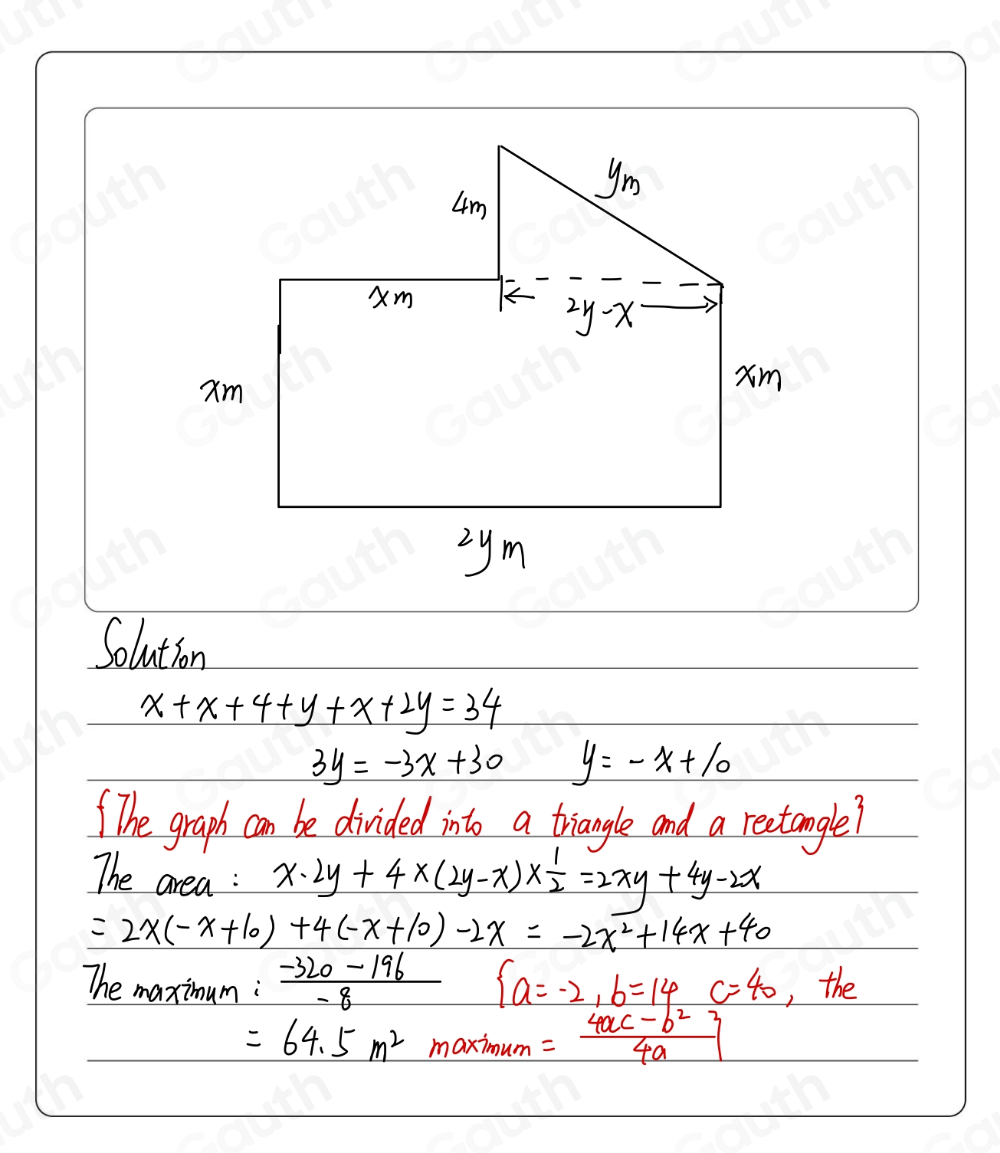 ym
4m
xm
2y-x
xm
xm
2ym
Solution
x+x+4+y+x+2y=34
3y=-3x+30 y=-x+10
{The graph can be divided into a triangle and a rectangle}
The area: x·2y+4×(2y-x)×1/2=2xy+4y-2x
=2x(-x+10)+4(-x+10)-2x=-2x²+14x+40
The maximum: (-320-196)/-8 {a=-2, b=14 c=40, the
=64.5 m² maximum=(4ac-b²)/4a}
Gauth